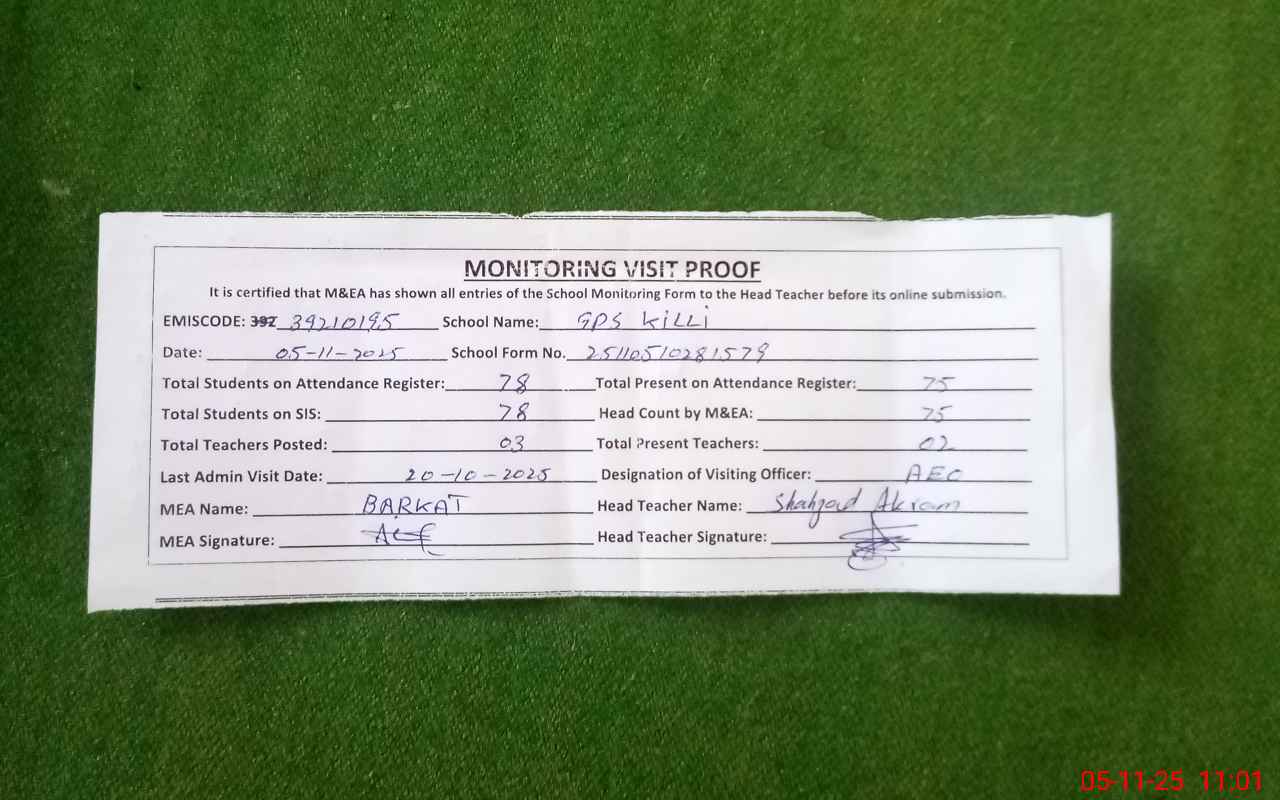 MONITORING VISIT PROOF
It is certified that M&EA has shown all entries of the School Monitoring Form to the Head Teacher before its online submission.
EMISCODE: 392 39210195 School Name: GPS KiLLi
Date: 05-11-2025 School Form No. 25110510281579
Total Students on Attendance Register: 78 Total Present on Attendance Register: 75
Total Students on SIS: 78 Head Count by M&EA: 75
Total Teachers Posted: 03 Total Present Teachers: 02
Last Admin Visit Date: 20-10-2025 Designation of Visiting Officer: AEO
MEA Name: BARKAT Head Teacher Name: Shahzad Akram
MEA Signature: Head Teacher Signature:
05-11-25 11:01